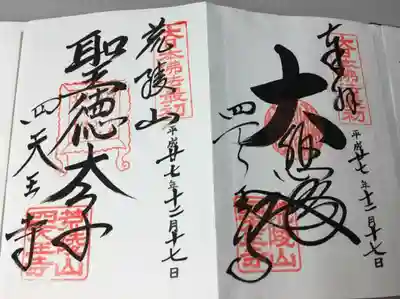 奉拝
大日本佛法最初
平成廿七年十二月十七日
大
四天王寺
荒陵山
四天王寺
荒陵山
大日本佛法最初
平成廿七年十二月十七日
聖徳太子
四天王寺
荒陵山
四天王寺